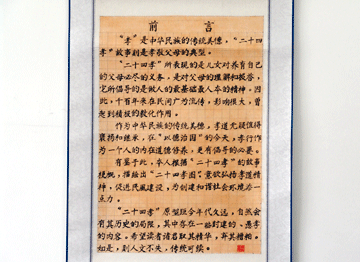 前言
"孝"是中华民族的传统美德,"二十四
孝"故事则是孝敬父母的典型。
"二十四孝"所表现的是儿女对养育自己
的父母必尽的义务,是对父母的理解和报答,
它所倡导的是做人的最基础最人本的精神,因
此,千百年来在民间广为流传,影响很大,曾
起到积极的教化作用。
作为中华民族的传统美德,孝道无疑值得
褒扬和继承,在"以德治国"的今天,孝行作
为一个人的内在道德修养,更有倡导的必要。
有鉴于此,本人根据"二十四孝"的故事
梗概,描绘出"二十四孝图"意欲弘扬孝道精
神,促进民风建设,为创建和谐社会环境尽一
点力。
"二十四孝"原型距今年代久远,自然会
有其历史的局限,其中存在一些封建的、愚孝
的内容。希望读者诸君取其精华,弃其糟粕。
如是,则人文不失,传统可续。